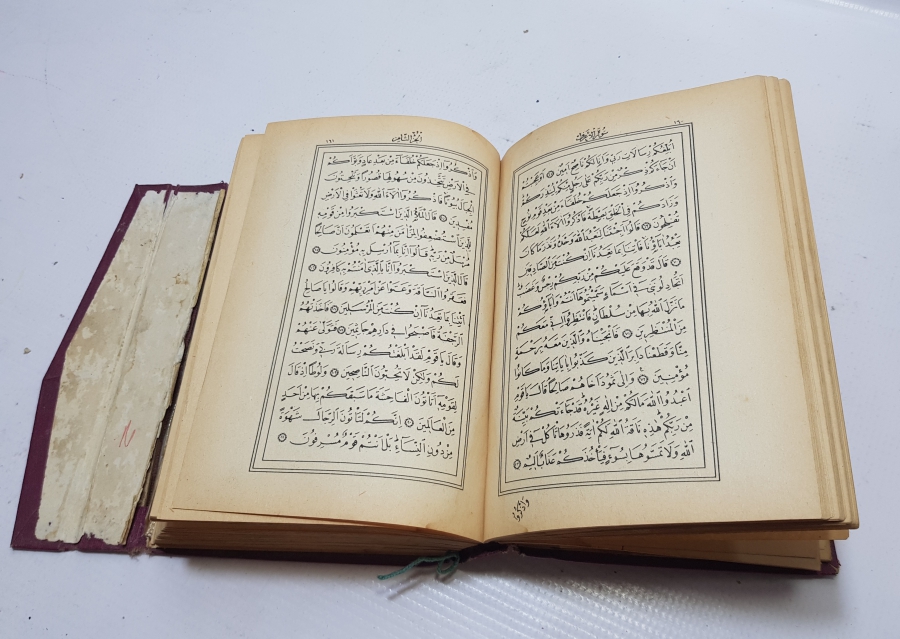 سُورَةُ الْاَعْرَافِ ١٦٠
اُبَلِّغُكُمْ رِسَالَاتِ رَبِّي وَاَنَا لَكُمْ نَاصِحٌ اَمِينٌ ۝ اَوَعَجِبْتُمْ
اَنْ جَاءَكُمْ ذِكْرٌ مِنْ رَبِّكُمْ عَلٰى رَجُلٍ مِنْكُمْ لِيُنْذِرَكُمْ
وَاذْكُرُوا اِذْ جَعَلَكُمْ خُلَفَاءَ مِنْ بَعْدِ قَوْمِ نُوحٍ
وَزَادَكُمْ فِي الْخَلْقِ بَصْطَةً فَاذْكُرُوا اٰلَاءَ اللّٰهِ لَعَلَّكُمْ
تُفْلِحُونَ ۝ قَالُوا اَجِئْتَنَا لِنَعْبُدَ اللّٰهَ وَحْدَهُ وَنَذَرَ مَا كَانَ
يَعْبُدُ اٰبَاؤُنَا فَأْتِنَا بِمَا تَعِدُنَا اِنْ كُنْتَ مِنَ الصَّادِقِينَ
۝ قَالَ قَدْ وَقَعَ عَلَيْكُمْ مِنْ رَبِّكُمْ رِجْسٌ وَغَضَبٌ
اَتُجَادِلُونَنِي فِي اَسْمَاءٍ سَمَّيْتُمُوهَا اَنْتُمْ وَاٰبَاؤُكُمْ
مَا نَزَّلَ اللّٰهُ بِهَا مِنْ سُلْطَانٍ فَانْتَظِرُوا اِنِّي مَعَكُمْ
مِنَ الْمُنْتَظِرِينَ ۝ فَاَنْجَيْنَاهُ وَالَّذِينَ مَعَهُ بِرَحْمَةٍ
مِنَّا وَقَطَعْنَا دَابِرَ الَّذِينَ كَذَّبُوا بِاٰيَاتِنَا وَمَا كَانُوا
مُؤْمِنِينَ ۝ وَاِلٰى ثَمُودَ اَخَاهُمْ صَالِحًا قَالَ يَا قَوْمِ
اعْبُدُوا اللّٰهَ مَا لَكُمْ مِنْ اِلٰهٍ غَيْرُهُ قَدْ جَاءَتْكُمْ بَيِّنَةٌ
مِنْ رَبِّكُمْ هٰذِهِ نَاقَةُ اللّٰهِ لَكُمْ اٰيَةً فَذَرُوهَا تَأْكُلْ فِي اَرْضِ
اللّٰهِ وَلَا تَمَسُّوهَا بِسُوءٍ فَيَأْخُذَكُمْ عَذَابٌ اَلِيمٌ ۝
وَاذْكُرُوا
اَلْجُزْءُ الثَّامِنُ ١٦١
وَاذْكُرُوا اِذْ جَعَلَكُمْ خُلَفَاءَ مِنْ بَعْدِ عَادٍ وَبَوَّاَكُمْ
فِي الْاَرْضِ تَتَّخِذُونَ مِنْ سُهُولِهَا قُصُورًا وَتَنْحِتُونَ
الْجِبَالَ بُيُوتًا فَاذْكُرُوا اٰلَاءَ اللّٰهِ وَلَا تَعْثَوْا فِي الْاَرْضِ
مُفْسِدِينَ ۝ قَالَ الْمَلَاُ الَّذِينَ اسْتَكْبَرُوا مِنْ قَوْمِهِ
لِلَّذِينَ اسْتُضْعِفُوا لِمَنْ اٰمَنَ مِنْهُمْ اَتَعْلَمُونَ اَنَّ صَالِحًا
مُرْسَلٌ مِنْ رَبِّهِ قَالُوا اِنَّا بِمَا اُرْسِلَ بِهِ مُؤْمِنُونَ ۝
قَالَ الَّذِينَ اسْتَكْبَرُوا اِنَّا بِالَّذِي اٰمَنْتُمْ بِهِ كَافِرُونَ ۝
فَعَقَرُوا النَّاقَةَ وَعَتَوْا عَنْ اَمْرِ رَبِّهِمْ وَقَالُوا يَا صَالِحُ
ائْتِنَا بِمَا تَعِدُنَا اِنْ كُنْتَ مِنَ الْمُرْسَلِينَ ۝ فَاَخَذَتْهُمُ
الرَّجْفَةُ فَاَصْبَحُوا فِي دَارِهِمْ جَاثِمِينَ ۝ فَتَوَلّٰى عَنْهُمْ
وَقَالَ يَا قَوْمِ لَقَدْ اَبْلَغْتُكُمْ رِسَالَةَ رَبِّي وَنَصَحْتُ
لَكُمْ وَلٰكِنْ لَا تُحِبُّونَ النَّاصِحِينَ ۝ وَلُوطًا اِذْ قَالَ
لِقَوْمِهِ اَتَأْتُونَ الْفَاحِشَةَ مَا سَبَقَكُمْ بِهَا مِنْ اَحَدٍ
مِنَ الْعَالَمِينَ ۝ اِنَّكُمْ لَتَأْتُونَ الرِّجَالَ شَهْوَةً
مِنْ دُونِ النِّسَاءِ بَلْ اَنْتُمْ قَوْمٌ مُسْرِفُونَ ۝